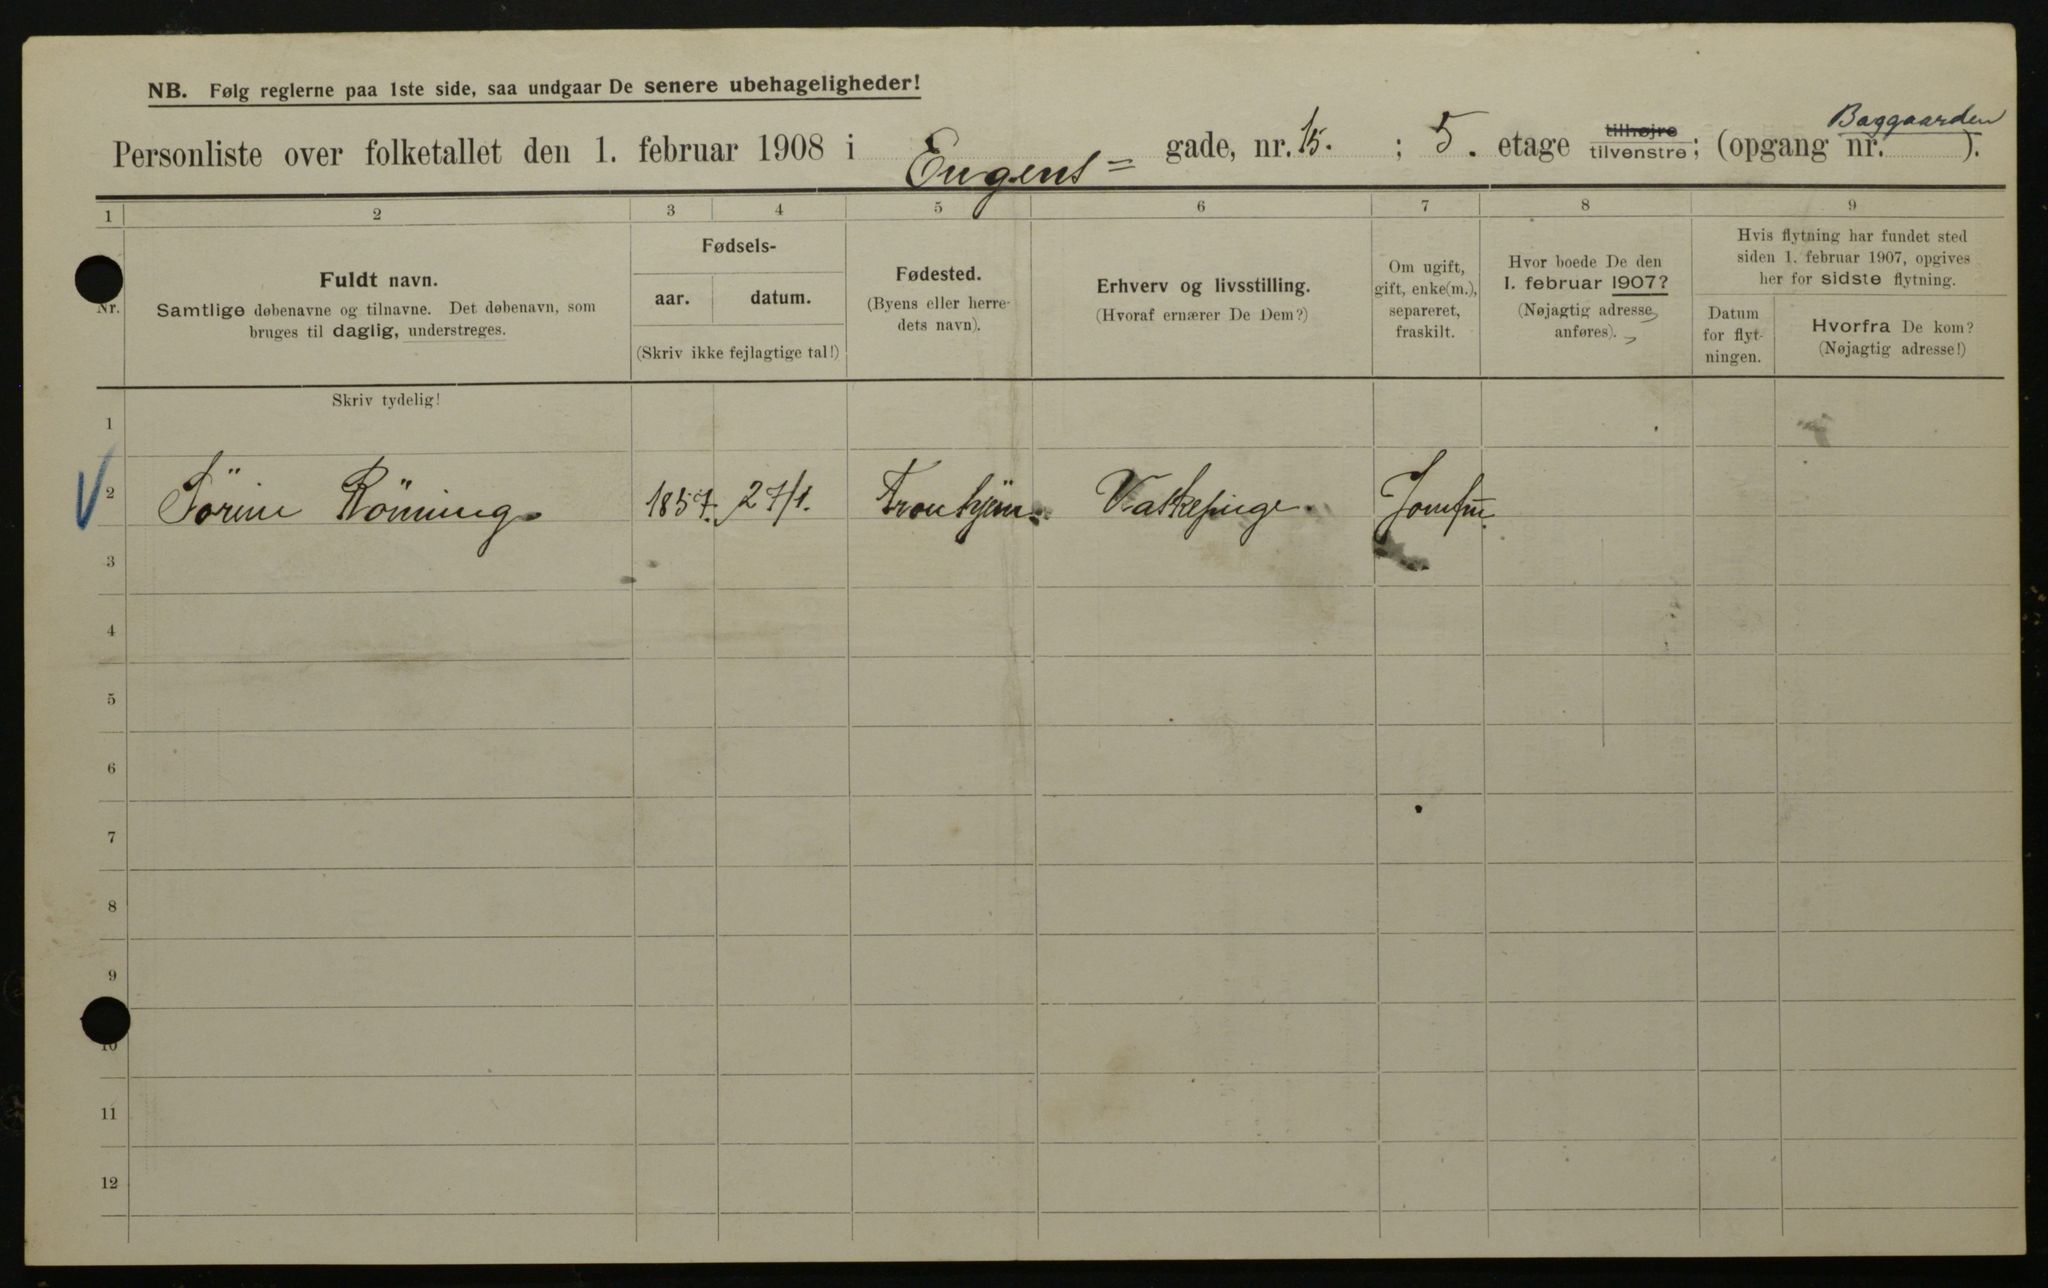 NB. Følg reglerne paa 1ste side, saa undgaar De senere ubehageligheder!
Baggaarden
Personliste over folketallet den 1. februar 1908 i Eugens= gade, nr. 15. ; 5. etage tilhøjre tilvenstre; (opgang nr. ).
1 2 3 4 5 6 7 8 9
Nr.
Fuldt navn.
Samtlige døbenavne og tilnavne. Det døbenavn, som
bruges til daglig, understreges.
Fødsels-
aar. datum.
(Skriv ikke fejlagtige tal!)
Fødested.
(Byens eller herre-
dets navn).
Erhverv og livsstilling.
(Hvoraf ernærer De Dem?)
Om ugift,
gift, enke(m.),
separeret,
fraskilt.
Hvor boede De den
1. februar 1907?
(Nøjagtig adresse
anføres).
Hvis flytning har fundet sted
siden 1. februar 1907, opgives
her for sidste flytning.
Datum
for flyt-
ningen.
Hvorfra De kom?
(Nøjagtig adresse!)
Skriv tydelig!
1
2 Sörine Rönning 1857. 27/1. Tronhjem. Vaskepige. Jomfru.
3
4
5
6
7
8
9
10
11
12